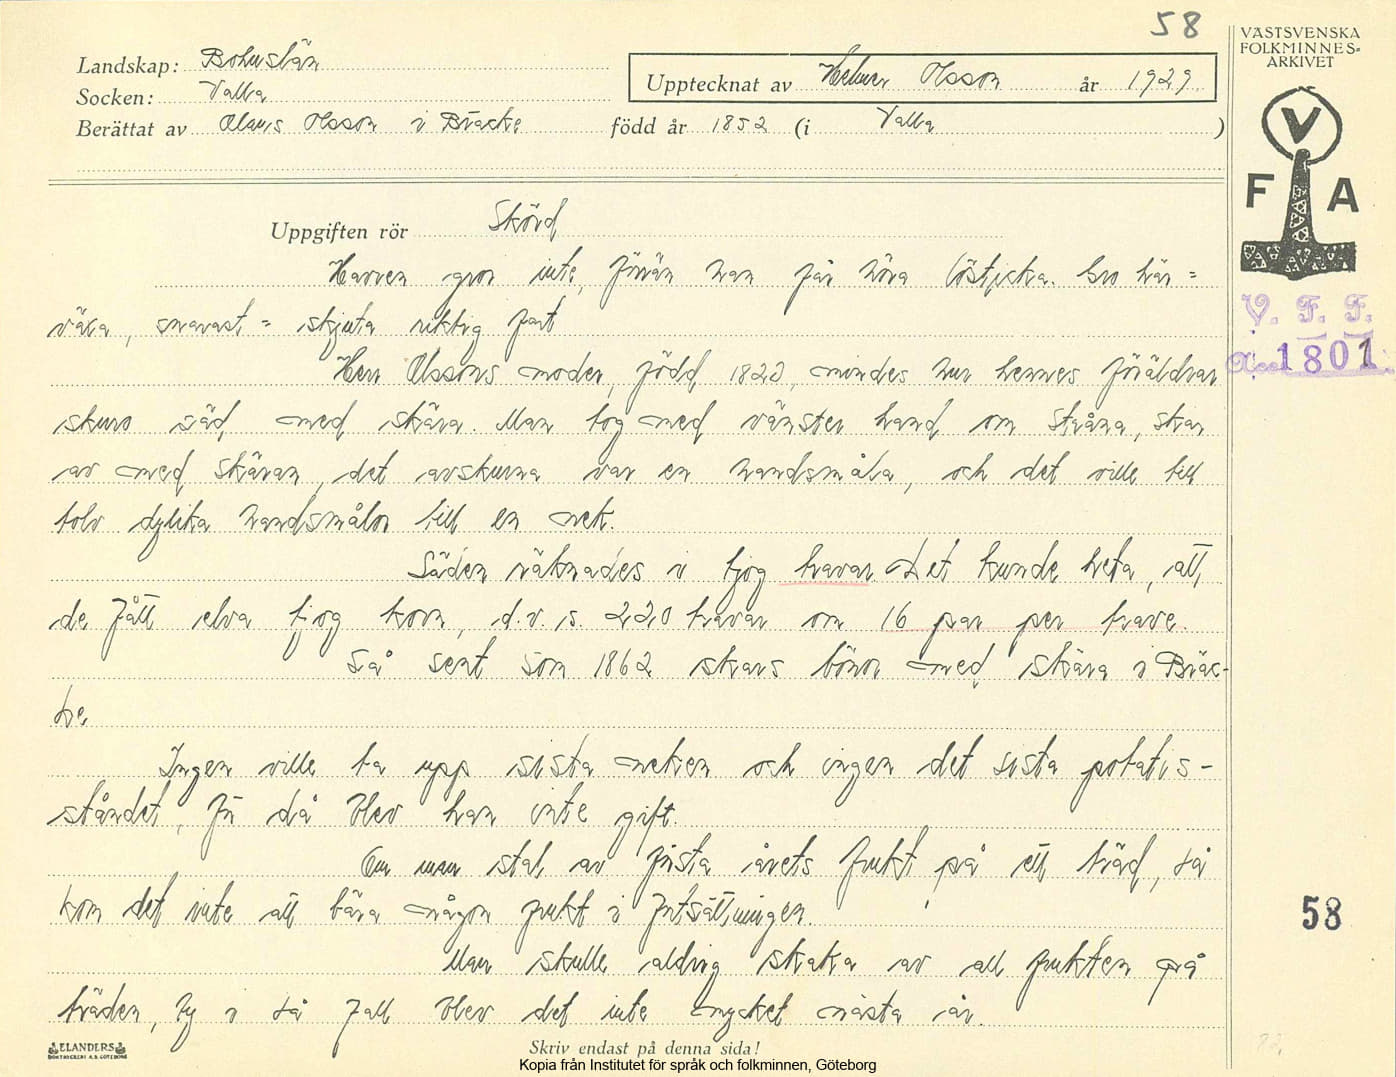 58
VÄSTSVENSKA
FOLKMINNES-
ARKIVET
Landskap: Bohuslän
Upptecknat av Helmer Olsson år 1929
Socken: Valla
Berättat av Olaus Olsson i Bräcke född år 1852 (i Valla )
V
F A
Uppgiften rör Skörd
Havren gror inte, förrän han får höra löstjicka. Gro här =
växa, snarast = skjuta riktig fart
V. F. F.
Acc. 1801
Herr Olssons moder, född 1820, mindes hur hennes föräldrar
skuro säd med skära. Man tog med vänster hand om stråna, skar
av med skäran, det avskurna var en handsmåla, och det ville till
tolv dylika handsmålor till en nek.
Säden räknades i tjog travar. Det kunde heta, att
de fått elva tjog korn, d.v.s. 220 travar om 16 par per trave.
Så sent som 1862 skars bönor med skära i Bräc-
ke
Ingen ville ta upp sista neken och ingen det sista potatis-
ståndet, för då blev han inte gift.
Om man stal av första årets frukt på ett träd, så
kom det inte att bära någon frukt i fortsättningen.
58
Man skulle aldrig skaka av all frukten på
träden, ty i så fall blev det inte mycket nästa år.
ELANDERS
BOKTRYCKERI A.B. GÖTEBORG
Skriv endast på denna sida!
Kopia från Institutet för språk och folkminnen, Göteborg